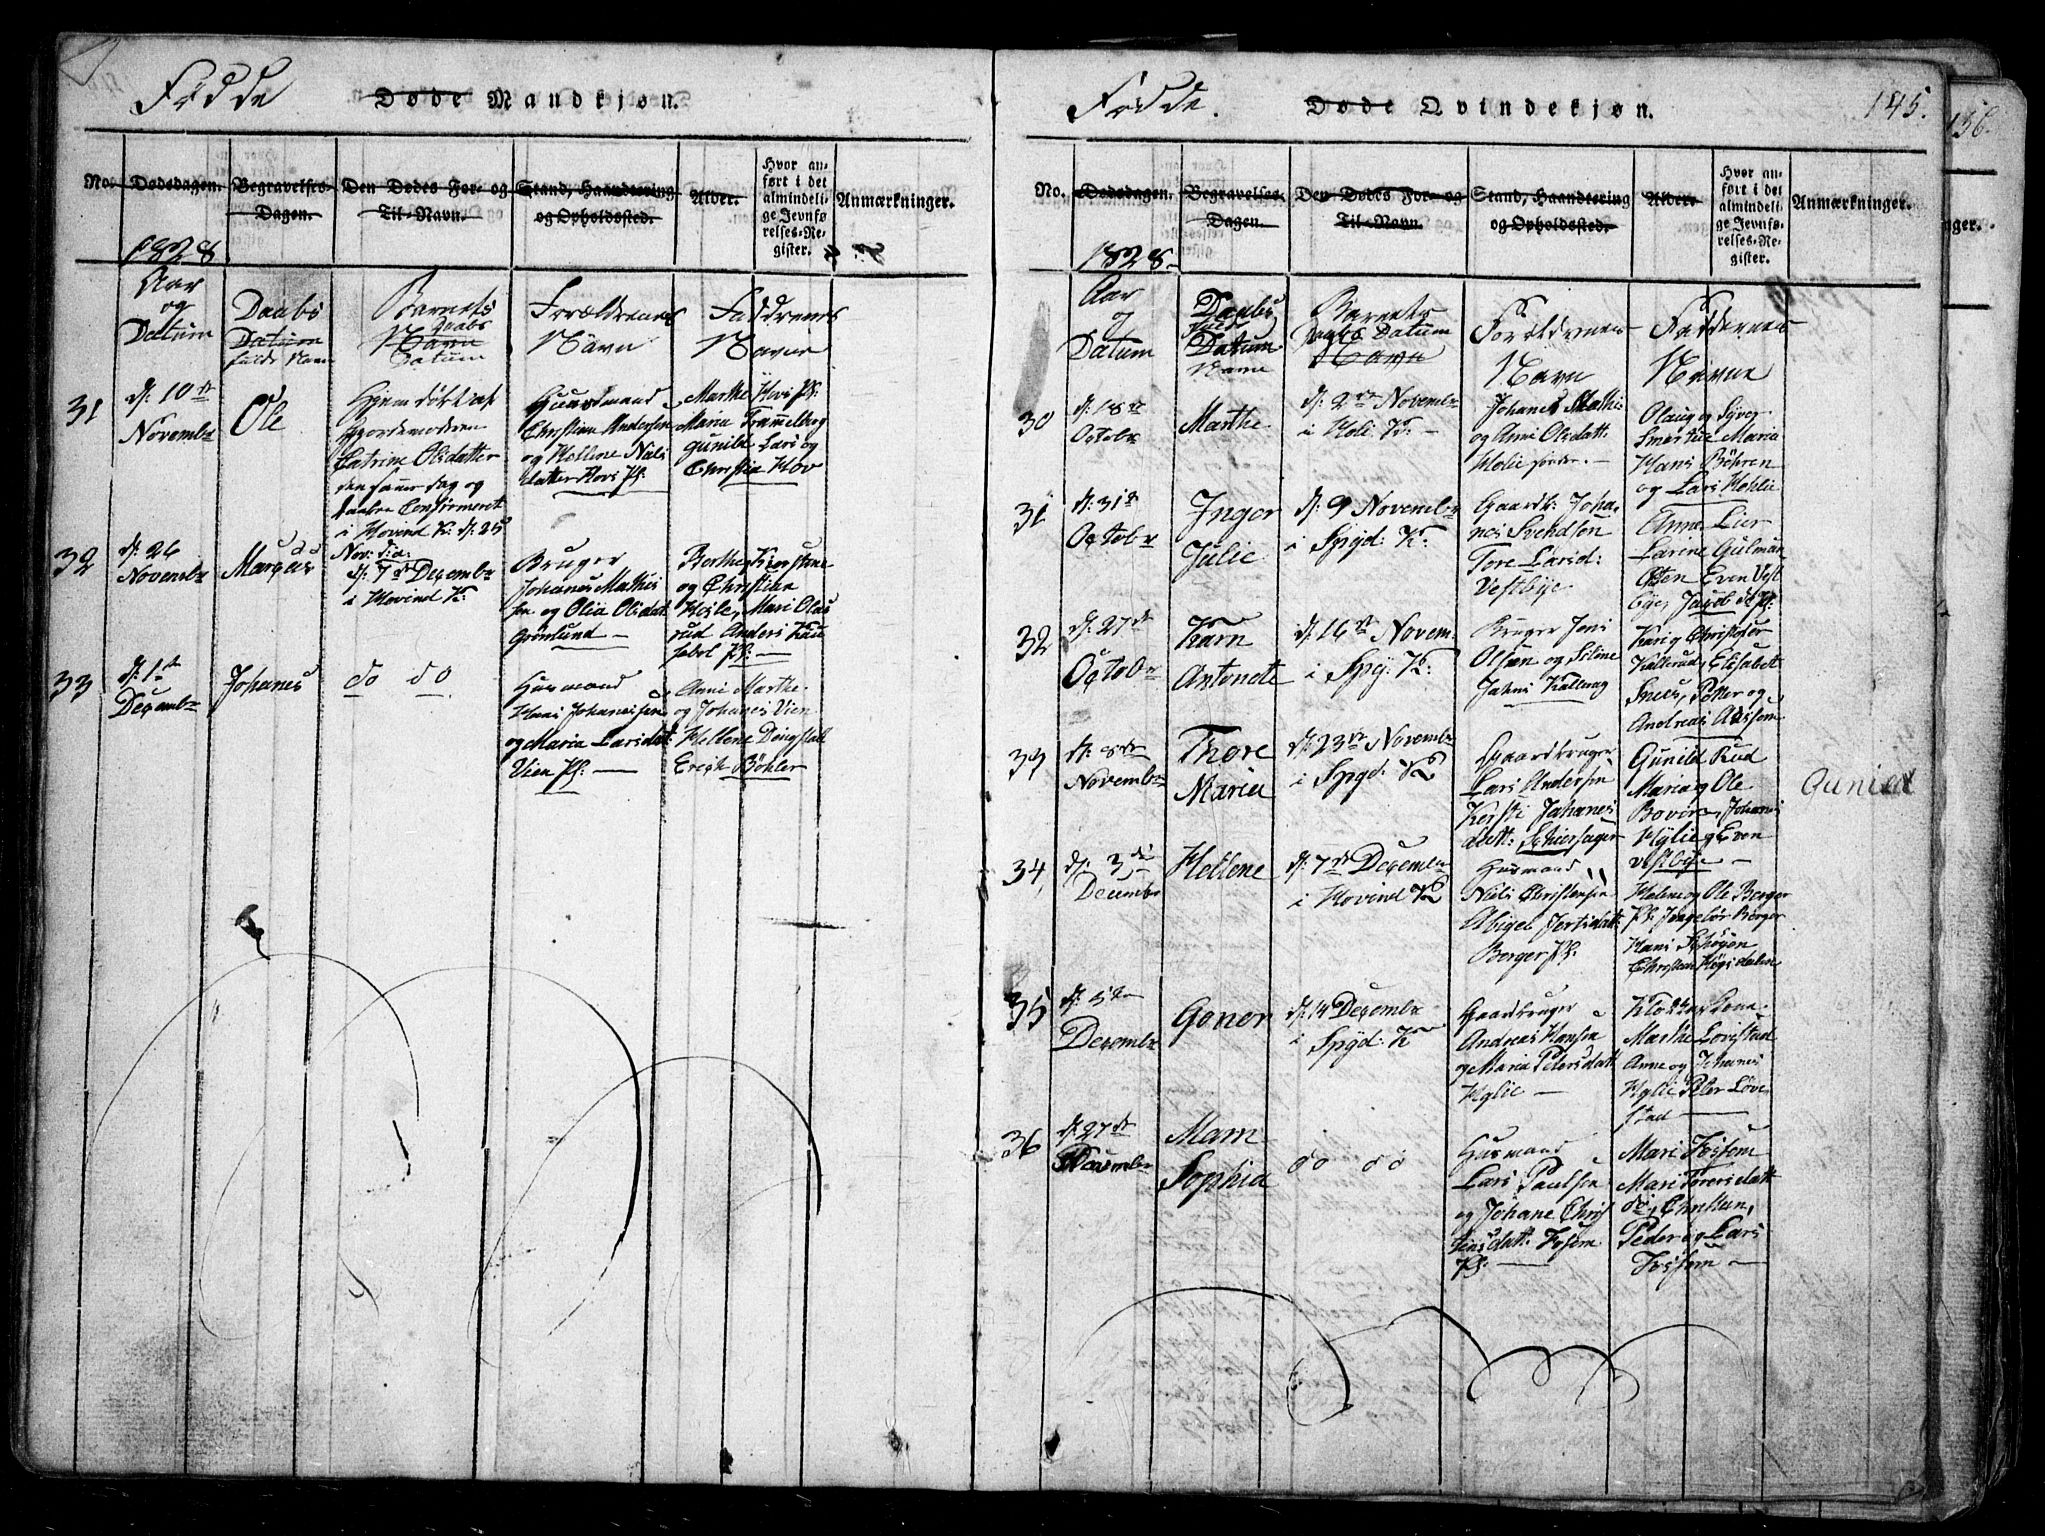 Fødde Døde Mandkjøn.
No. Dødsdagen. Begravelses-Dagen. Den Dødes For- og Til-Navn. Stand, Haandtering og Opholdssted. Alder. Hvor anført i det almindelige Jevnførelses-Register. Anmærkninger.
1828
Aar
og
Datum
Daabs
Datum
fulde Navn
Barnets
Daabs
Navn
Datum
Forældrenes
Navn
Faddrenes
Navne
31
d: 10de
Novembr
Ole
Hjemdøbt af
Gjordemodren
Catrine Olsdatter
den samme dag og
daaben Confirmeret
i Hovind K: d: 25
Nov: d:a:
Huusmand
Christian Andersen
og Hellene Niels
datter Hovs Pl:
Marthe Hovs Pl:
Maria Trammelborg
Gunild Lars og
Christian Hov
32
d: 26
Novembr
Marcus
d: 7de Decembr
i Hovind K:
Bruger
Johannes Mathis
sen og Olia Olsdat:
Grønlund
Berthe Kierstine
og Christian
Hosle, Mari Olas
rud Anders Kau
Pl:
33
d: 1ste
Decembr
Johanes
do do
Husmand
Hans Johanessen
og Maria Larsdat:
Vien Pl:
Anne Marthe
og Johanes Vien
Hellene Dongstad
Erich Bøhler
Fødde. Døde Qvindekjøn. 145.
No. Dødsdagen. Begravelses-Dagen. Den Dødes For- og Til-Navn. Stand, Haandtering og Opholdssted. Alder. Hvor anført i det almindelige Jevnførelses-Register. Anmærkninger.
1828
Aar
og
Datum
Daabs
fulde
Datum
Navn
Barnets
Daabs Datum
Navn
Forældrenes
Navn
Faddernes
Navne
30
d: 18de
Octobr
Marthe
d: 2den Novembr
i Holi K:
Johanes Mathis
og Anne Olsdatt:
Olaug og Syver
Maria
Hans Bøhren
og Lars Hohlie
31
d: 31te
Octobr
Inger
Julie
d: 9 Novembr
i Spyd: K:
Gaardb: Joha-
nes Svendsen
Tore Larsd:
Vestbye
Anne Lier
Larine Gulman
Osten Even Vest
bye, Jacob Pl:
32
d: 27de
Octobr
Karn
Antonete
d: 16de Novem.
i Spy: K:
Bruger Jens
Olsen og Siline
Jahns Kallerag
Kari og Christofer
Kallerud, Elisabet
Snees, Petter og
Andreas
33
d: 8de
Novembr
Thore
Maria
d: 23de Novembr
i Spyd: K
Gaardbruger
Lars Andersen
Kersti Johanes
datt: Schiersager
Gunild Rud
Maria og Ole
Bovin, Johanes
Hylie og Even
Vestbye
Gunild
34
d: 3die
Decembr
Hellene
d: 7de Decembr
i Hovind K
Husmand
Niels Christensen
Abigel Jertsdatt:
Berger Pl:
Helene og Ole Berger
Pl: Ingebor Berger
Hans Schøyen
Christian Høgsdalen
35
d: 5te
Decembr
Goner
d: 14 Decembr
i Spyd: K
Gaardbruger
Andreas Hansen
og Maria Petersdatt:
Hylie
Klokker Kone
Marthe Lovestad
Anne og Johanes
Hylie Peter Løve
stad
36
d: 27de
Decembr
Marn
Sophia
do do
Husmand
Lars Paulsen
og Johane Chris
tensdatt: Fosem
Pl:
Mari Fossem
Mari Torersdatt
do, Christian,
Peder og Lars
Fossem
156.
nger.